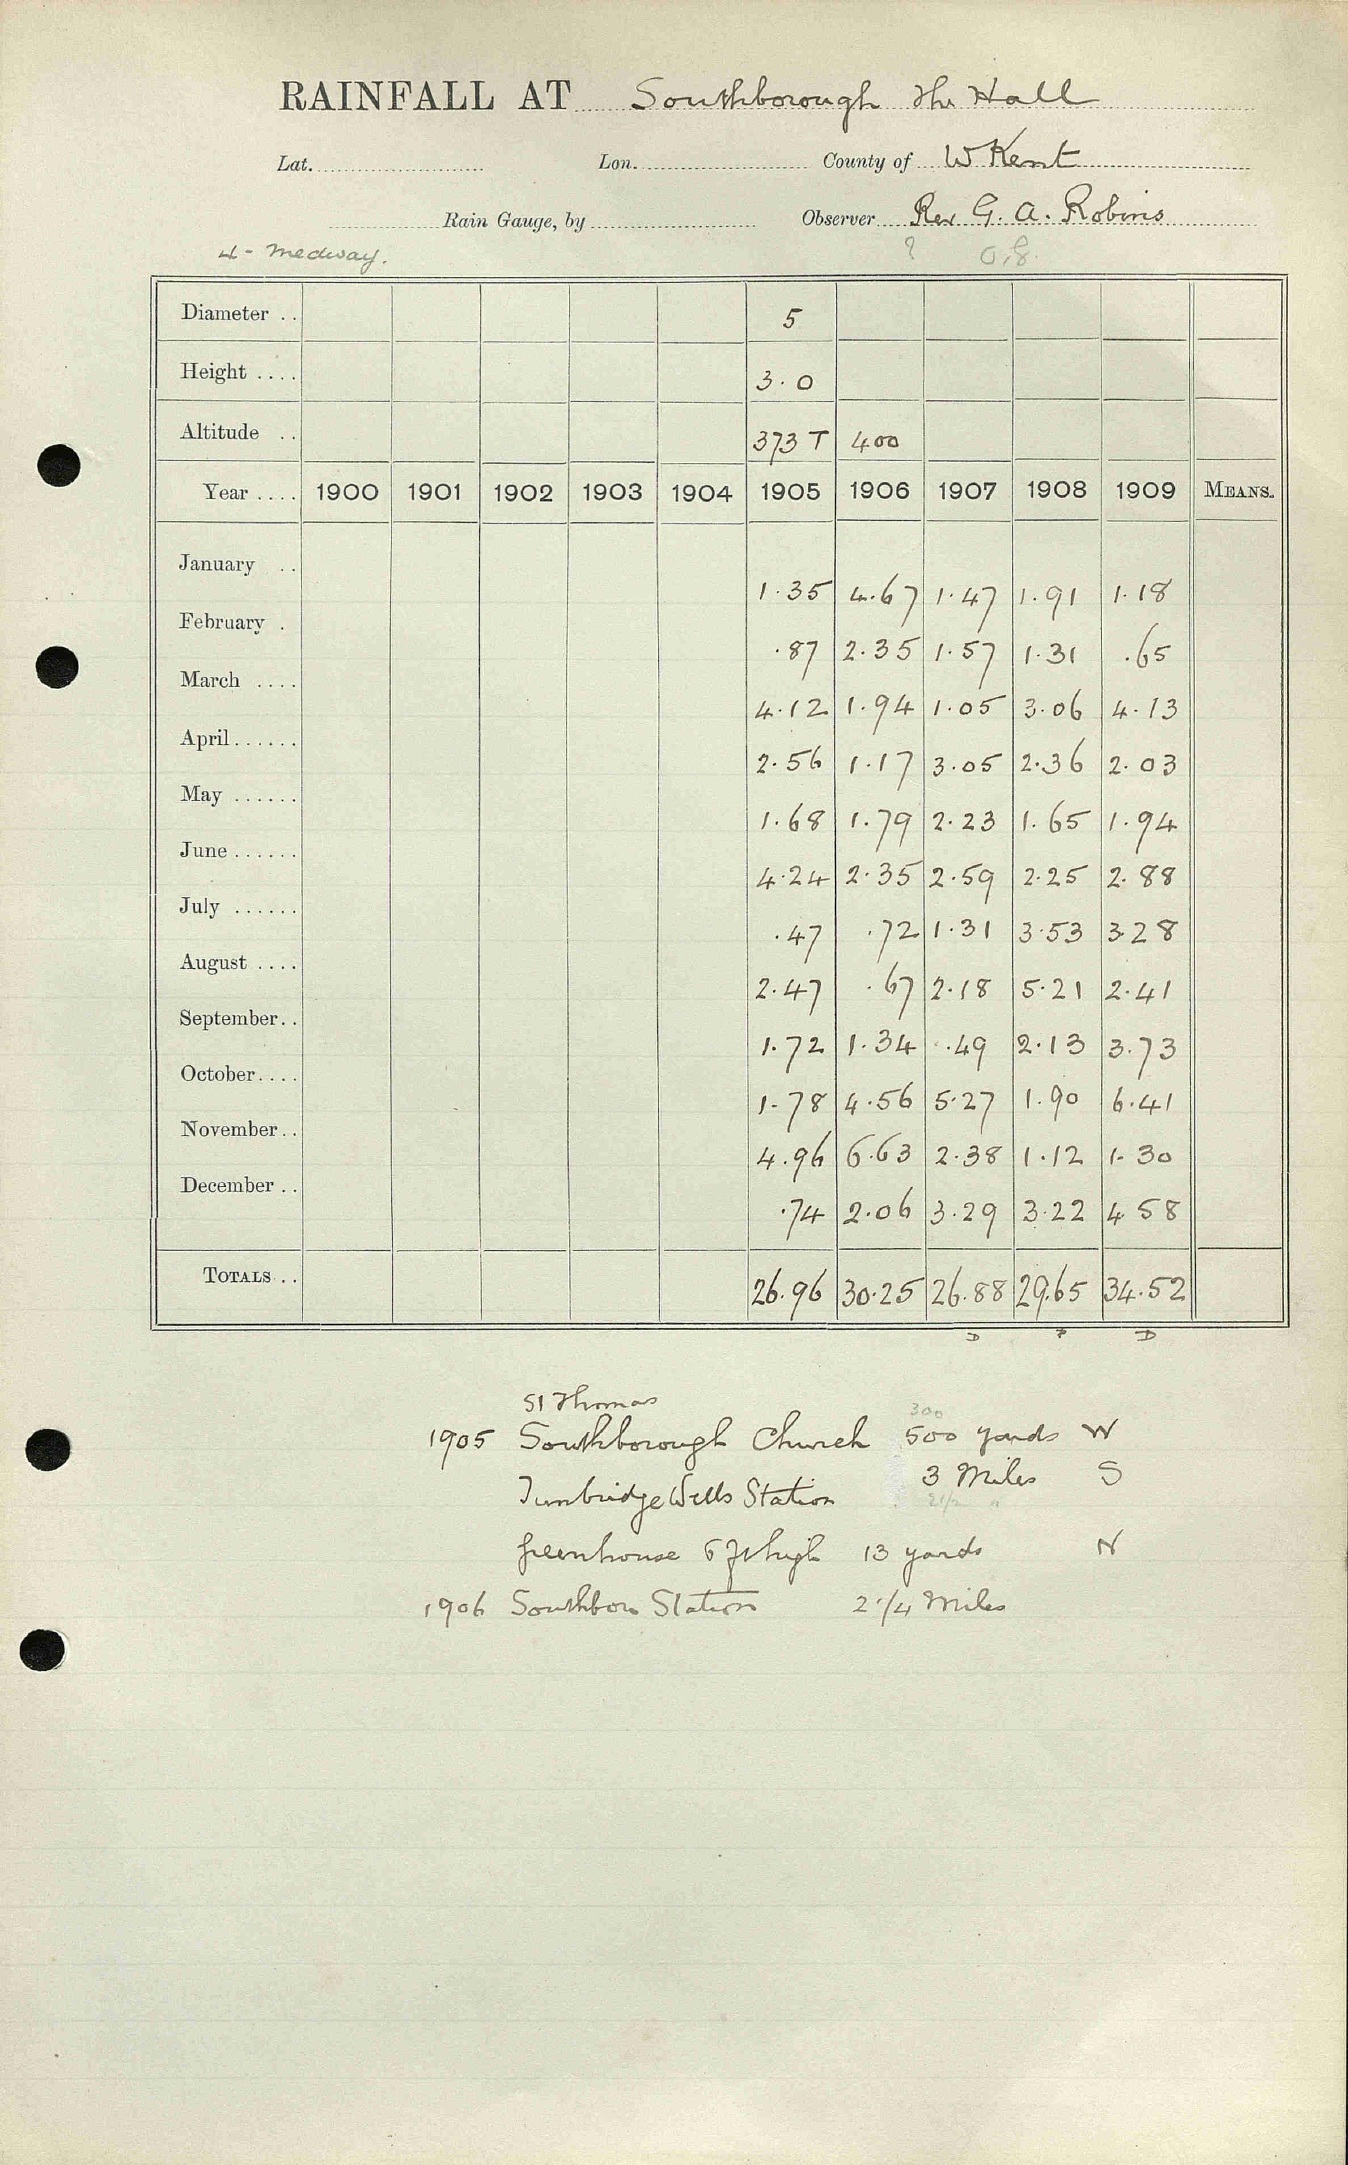 RAINFALL AT Southborough The Hall
Lat. Lon. County of W Kent
Rain Gauge, by Observer Rev G. A. Robins
4 - Medway. ?
Diameter .. 5
Height .... 3.0
Altitude .. 373 T 400
Year .... 1900 1901 1902 1903 1904 1905 1906 1907 1908 1909 MEANS.
January .. 1.35 4.67 1.47 1.91 1.18
February . .87 2.35 1.57 1.31 .65
March .... 4.12 1.94 1.05 3.06 4.13
April...... 2.56 1.17 3.05 2.36 2.03
May ...... 1.68 1.79 2.23 1.65 1.94
June...... 4.24 2.35 2.59 2.25 2.88
July ...... .47 .72 1.31 3.53 3.28
August .... 2.47 .67 2.18 5.21 2.41
September.. 1.72 1.34 .49 2.13 3.73
October.... 1.78 4.56 5.27 1.90 6.41
November.. 4.96 6.63 2.38 1.12 1.30
December .. .74 2.06 3.29 3.22 4.58
TOTALS .. 26.96 30.25 26.88 29.65 34.52
D D
St Thomas 300
1905 Southborough Church 500 yards W
Tunbridge Wells Station 3 Miles S
2 1/2 "
Greenhouse 6 ft high 13 yards N
1906 Southboro Station 2 1/4 Miles